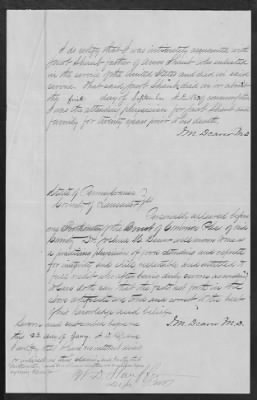 I do certify that I was intimately acquainted with
Jacob Shank father of Amos Shank who enlisted
in the service of the United States and died in said
service. That said Jacob Shank died on or about
the first day of September A.D. of consumption
I was the attending physician for Jacob Shank and
family for twenty years prior to his death
J.M. Deaver M.D.
State of Pennsylvania
County of Lancaster
Personally appeared before
me Prothonotary of the Court of Common Pleas of said
County Dr. Joshua M. Deaver well known to me as
a practicing physician of good standing and repute
for integrity and skill, reputable and entitled to
full credit who after being duly sworn according to
law doth say that the facts set forth in the
above certificate are true and correct to the best
of his knowledge and belief.
J.M. Deaver M.D.
Sworn and subscribed before
me this 22 day of Jany. A.D.